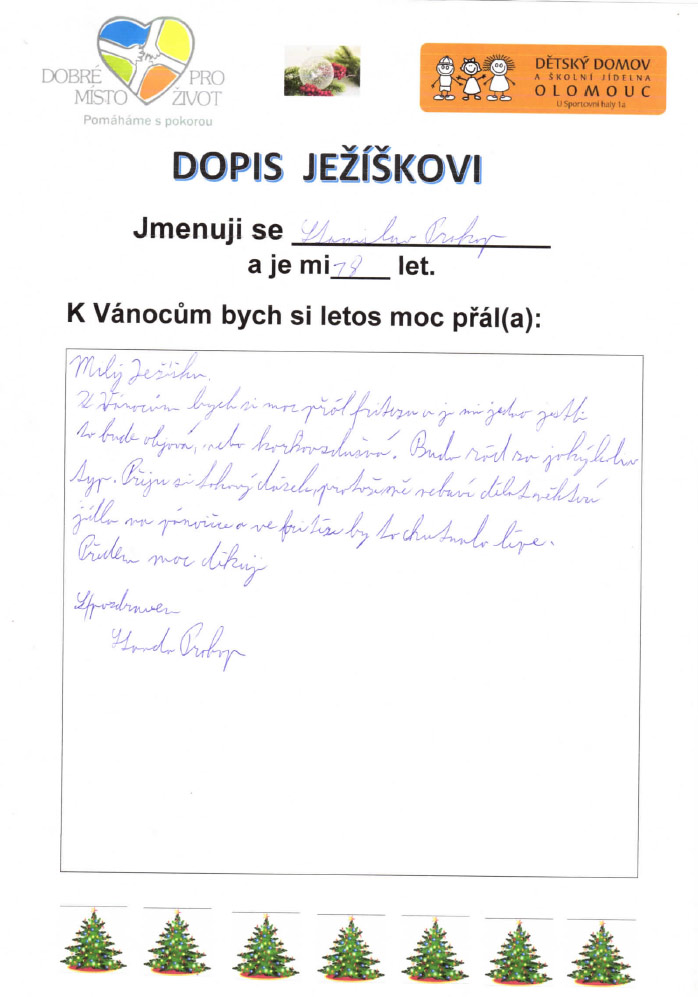 DOBRÉ PRO
MÍSTO ŽIVOT
Pomáháme s pokorou
DĚTSKÝ DOMOV
A ŠKOLNÍ JÍDELNA
OLOMOUC
U Sportovní haly 1a
DOPIS JEŽÍŠKOVI
Jmenuji se Stanislav Prokop
a je mi 18 let.
K Vánocům bych si letos moc přál(a):
Milý Ježíšku.
K Vánocům bych si moc přál fritezu a je mi jedno jestli
to bude olejová, nebo horkovzdušná. Budu rád za jakýkoliv
typ. Přeju si takový dárek, protože mě nebaví dělat některá
jídla na pánvičce a ve fritéze by to chutnalo lépe.
Předem moc děkuji
S pozdravem
Standa Prokop